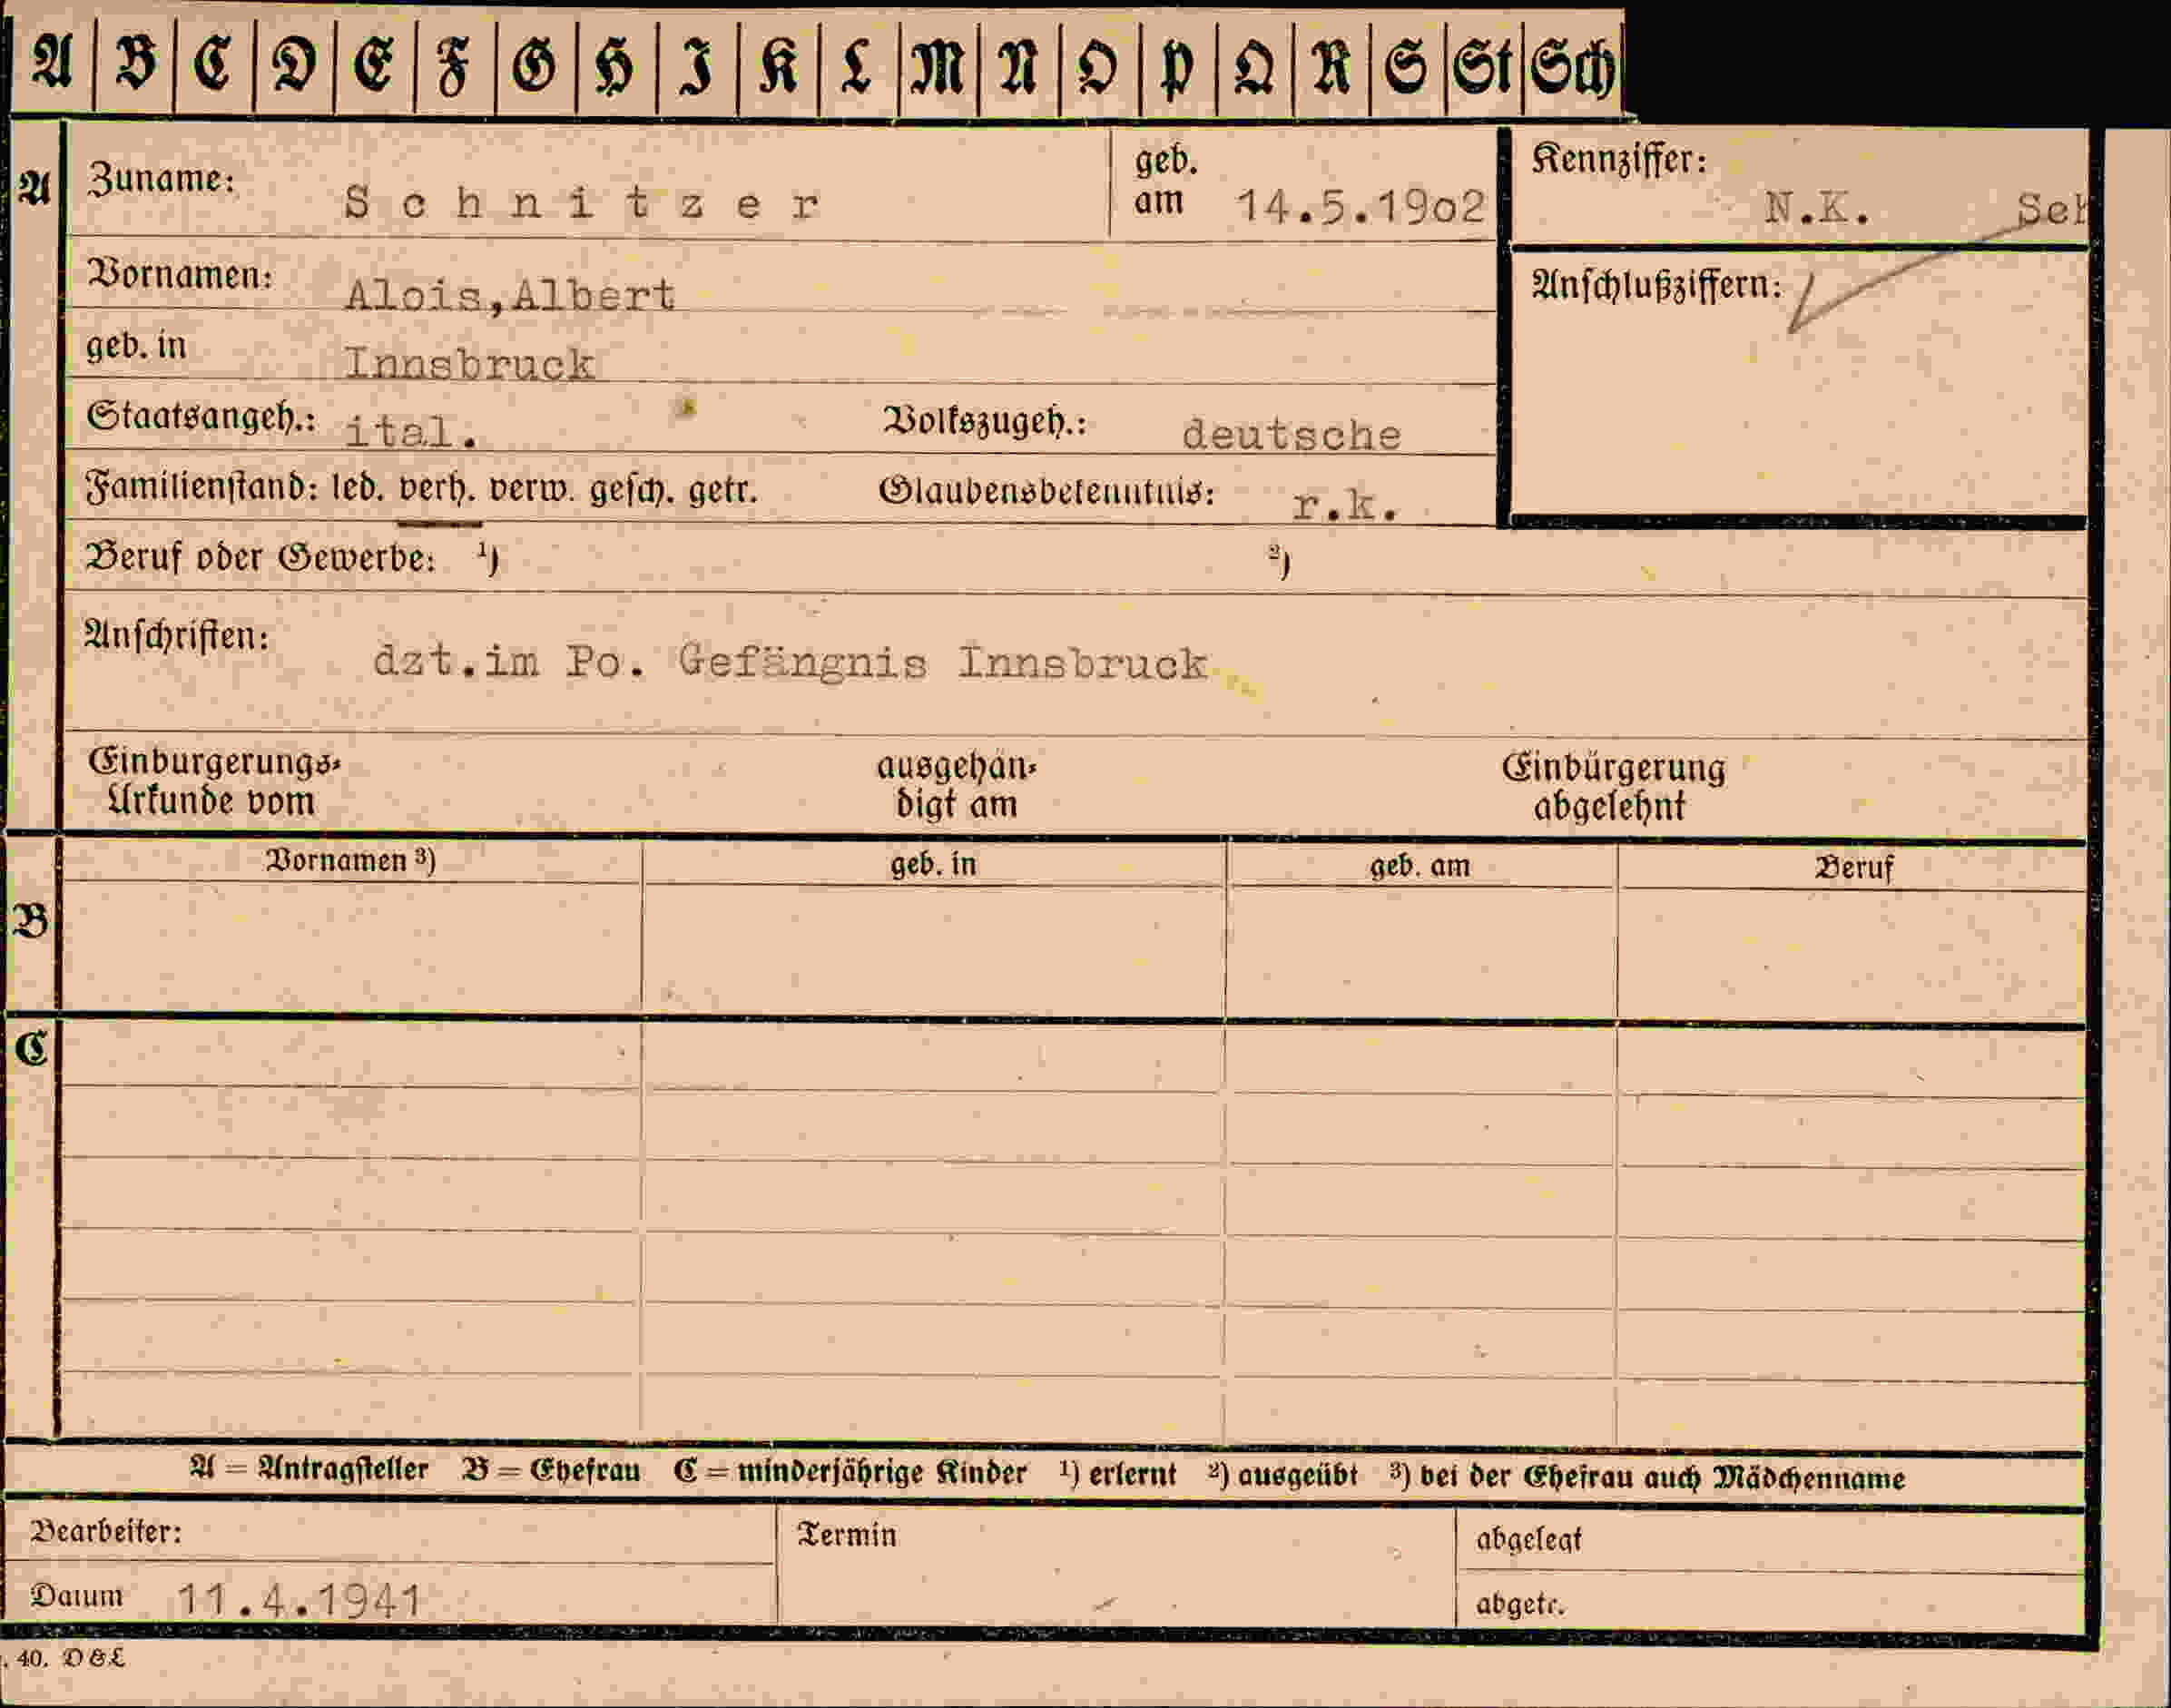 A B C D E F G H I K L M N O P Q R S St Sch
A Zuname: Schnitzer geb. am 14.5.19o2 Kennziffer: N.K. Sch
Vornamen: Alois,Albert Anschlußziffern:
geb. in Innsbruck
Staatsangeh.: ital. Volkszugeh.: deutsche
Familienstand: led. verh. verw. gesch. getr. Glaubensbekenntnis: r.k.
Beruf oder Gewerbe: ¹) ²)
Anschriften: dzt.im Po. Gefängnis Innsbruck
Einbürgerungs- ausgehän- Einbürgerung
Urkunde vom digt am abgelehnt
Vornamen ³) geb. in geb. am Beruf
B
C
A = Antragsteller B = Ehefrau C = minderjährige Kinder ¹) erlernt ²) ausgeübt ³) bei der Ehefrau auch Mädchenname
Bearbeiter: Termin abgelegt
Datum 11.4.1941 abgetr.
. 40. D&L